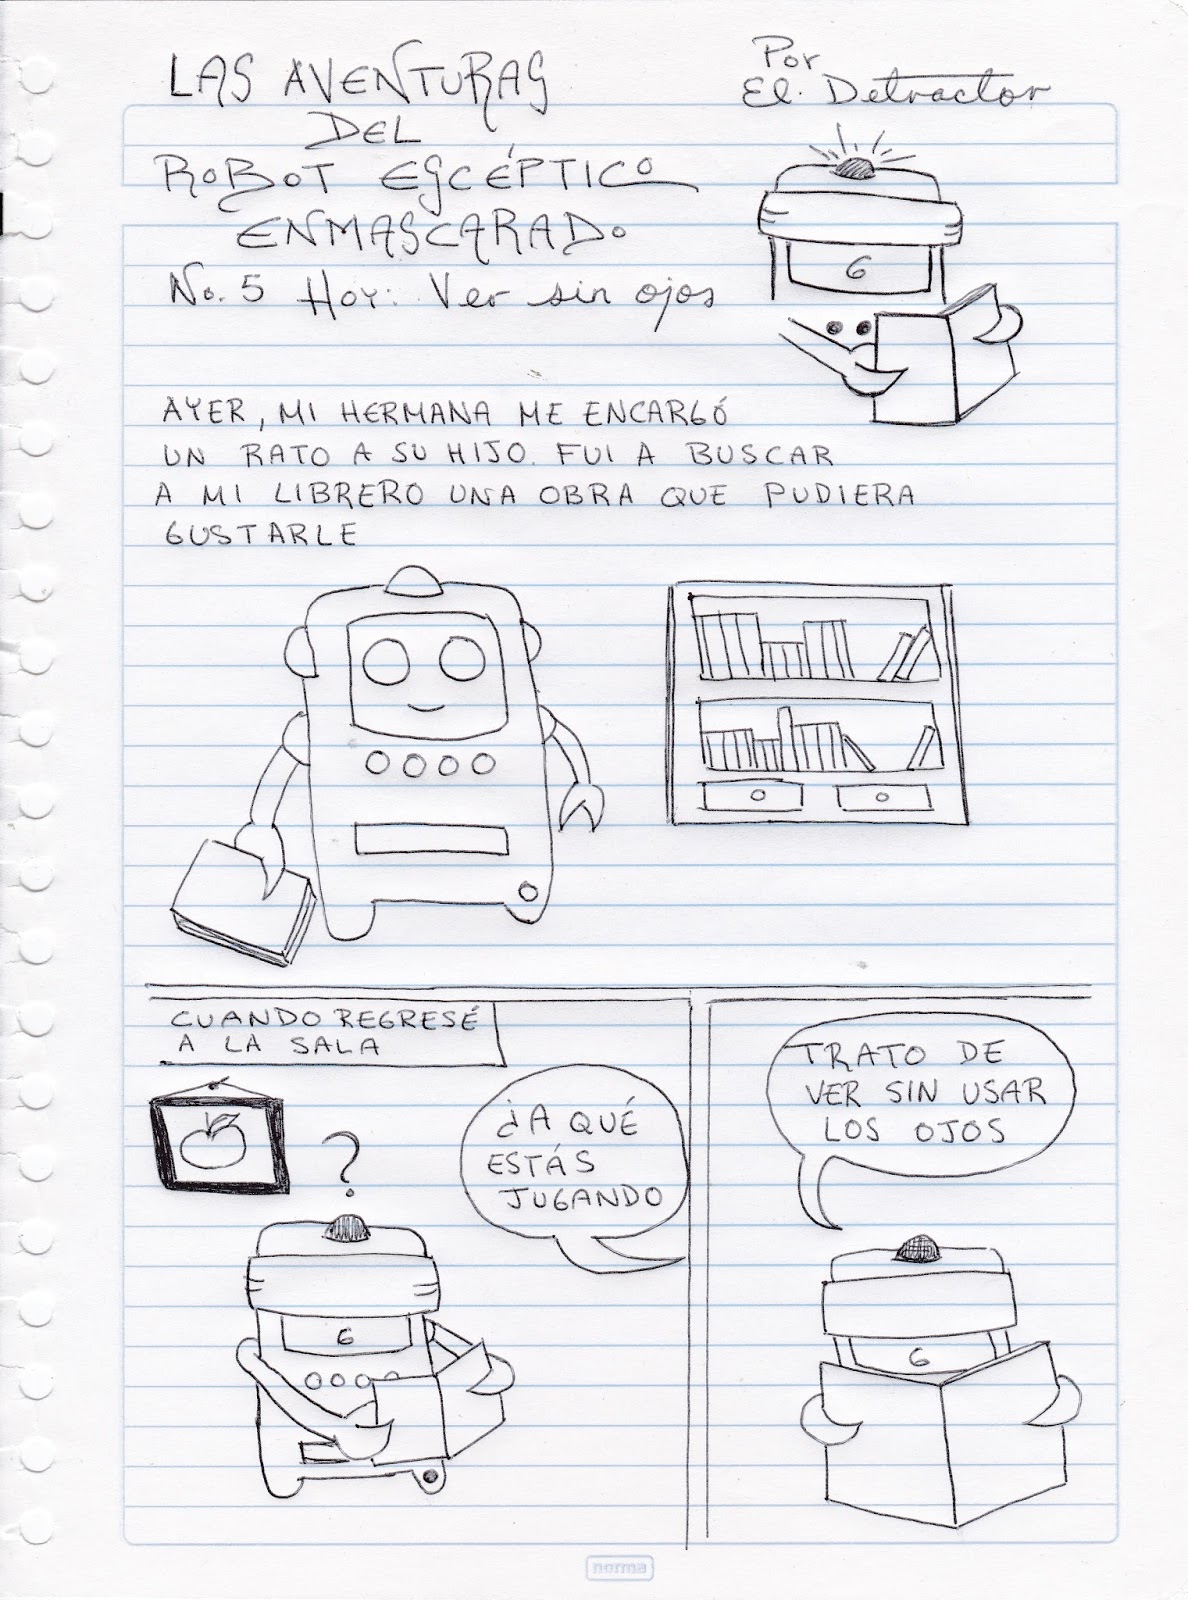 LAS AVENTURAS
DEL
ROBOT ESCÉPTICO
ENMASCARADO
No. 5 Hoy: Ver sin ojos
Por
El Detractor
6
AYER, MI HERMANA ME ENCARGÓ
UN RATO A SU HIJO. FUI A BUSCAR
A MI LIBRERO UNA OBRA QUE PUDIERA
GUSTARLE
CUANDO REGRESÉ
A LA SALA
?
¿A QUÉ
ESTÁS
JUGANDO
6
TRATO DE
VER SIN USAR
LOS OJOS
6
norma